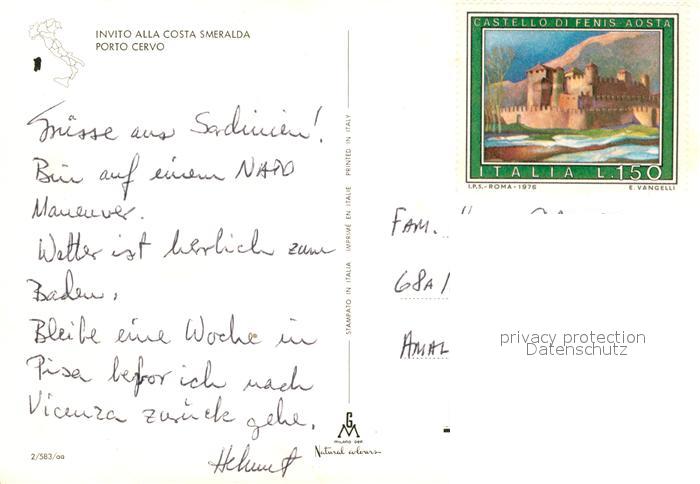 INVITO ALLA COSTA SMERALDA
PORTO CERVO
Grüsse aus Sardinien!
Bin auf einem NATO
Maneuver.
Wetter ist herrlich zum
Baden,
Bleibe eine Woche in
Pisa befor ich nach
Vicenza zurück gehe.
Helmut
2/583/aa
STAMPATO IN ITALIA IMPRIMÉ EN ITALIE PRINTED IN ITALY
GM
MILANO DEP.
Natural colours
CASTELLO DI FENIS-AOSTA
ITALIA L.150
I.P.S.-ROMA-1976 E. VANGELLI
FAM.
68A
AMAL
privacy protection
Datenschutz